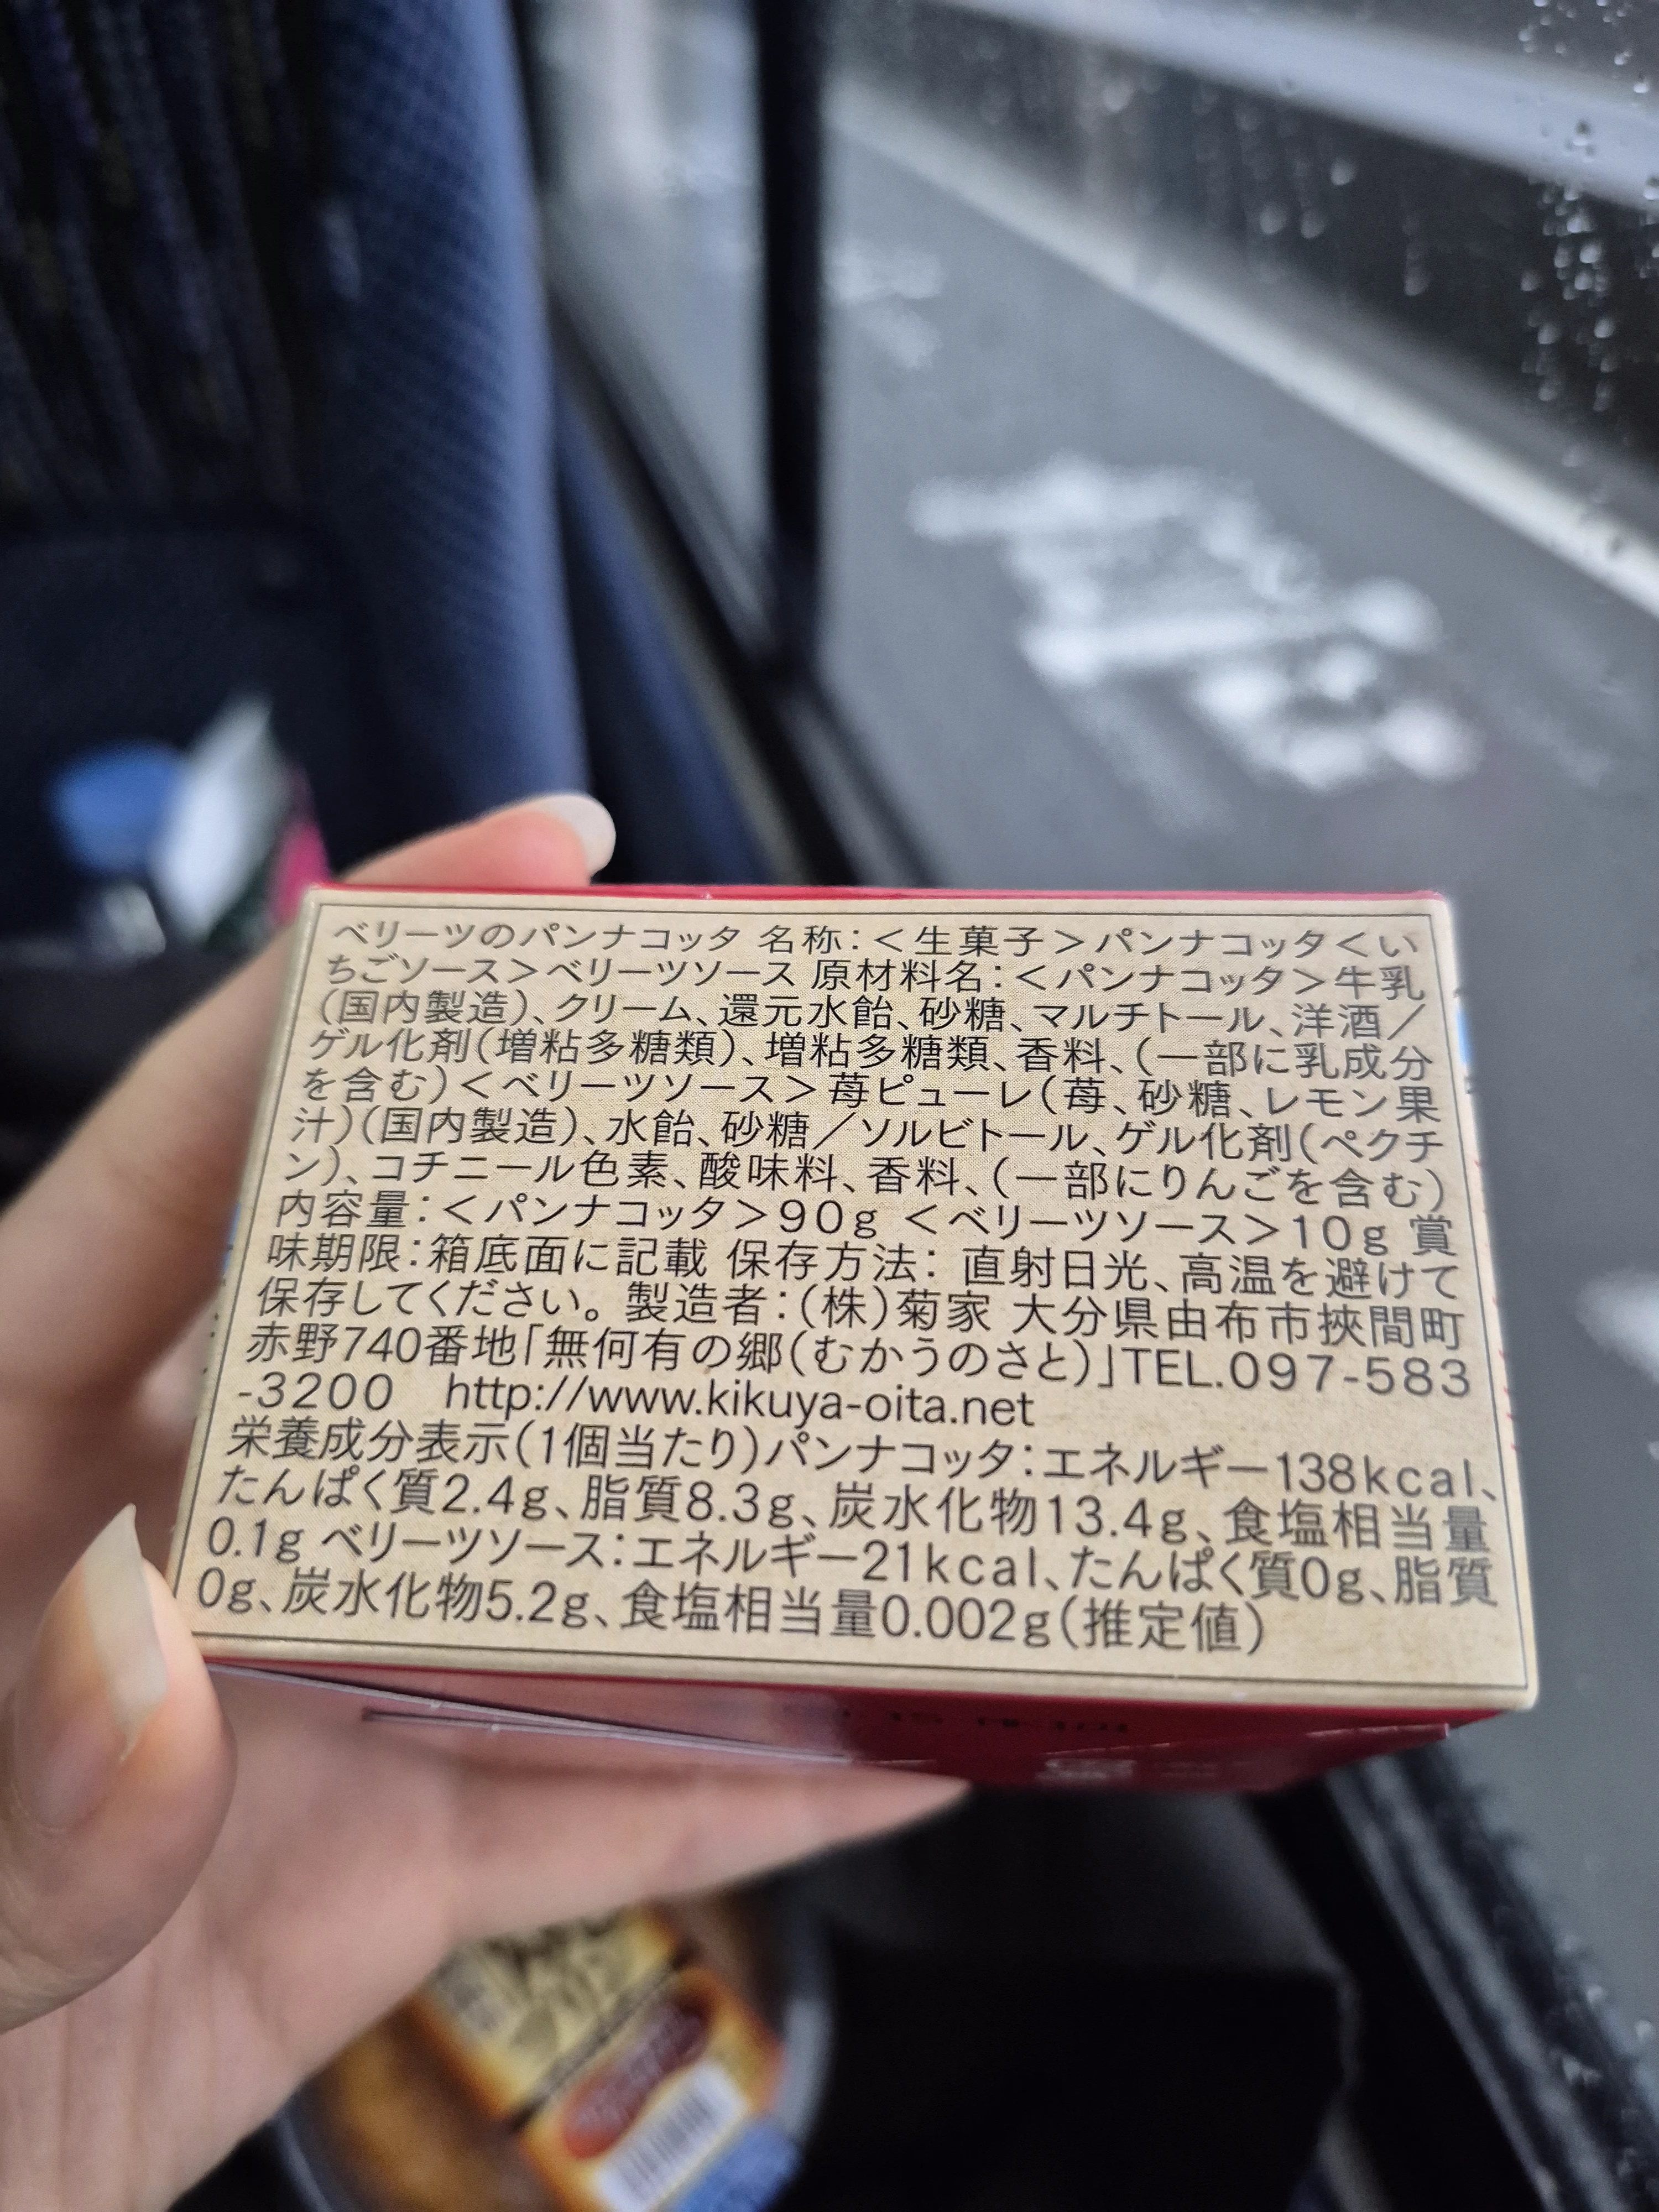 ベリーツのパンナコッタ 名称:<生菓子>パンナコッタ<い
ちごソース>ベリーツソース 原材料名:<パンナコッタ>牛乳
(国内製造)、クリーム、還元水飴、砂糖、マルチトール、洋酒/
ゲル化剤(増粘多糖類)、増粘多糖類、香料、(一部に乳成分
を含む)<ベリーツソース>苺ピューレ(苺、砂糖、レモン果
汁)(国内製造)、水飴、砂糖/ソルビトール、ゲル化剤(ペクチ
ン)、コチニール色素、酸味料、香料、(一部にりんごを含む)
内容量:<パンナコッタ>90g <ベリーツソース>10g 賞
味期限:箱底面に記載 保存方法: 直射日光、高温を避けて
保存してください。 製造者:(株)菊家 大分県由布市挾間町
赤野740番地「無何有の郷(むかうのさと)」TEL.097-583
-3200 http://www.kikuya-oita.net
栄養成分表示(1個当たり)パンナコッタ:エネルギー138kcal、
たんぱく質2.4g、脂質8.3g、炭水化物13.4g、食塩相当量
0.1g ベリーツソース:エネルギー21kcal、たんぱく質0g、脂質
0g、炭水化物5.2g、食塩相当量0.002g(推定値)